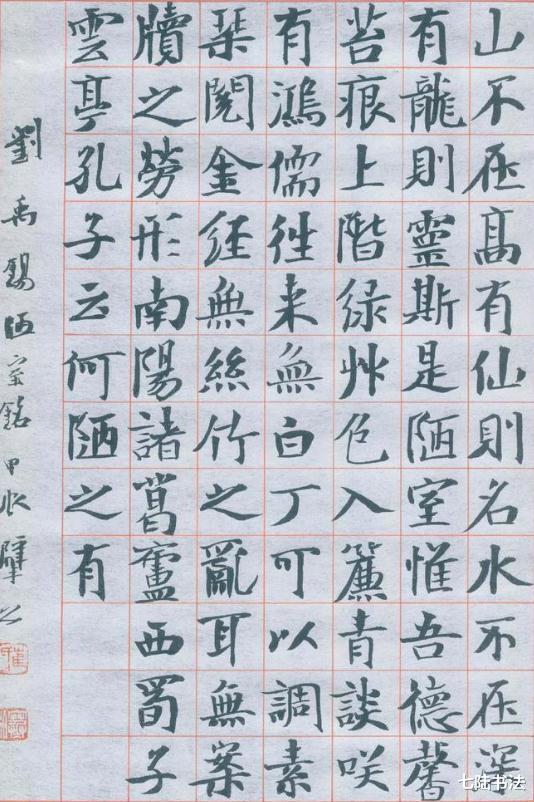 山不在高有仙則名水不在深
有龍則靈斯是陋室惟吾德馨
苔痕上階緑艸色入簾青談咲
有鴻儒往来無白丁可以調素
琹閱金経無絲竹之亂耳無案
牘之勞形南陽諸葛廬西蜀子
雲亭孔子云何陋之有
劉禹錫陋室銘甲
七陆书法